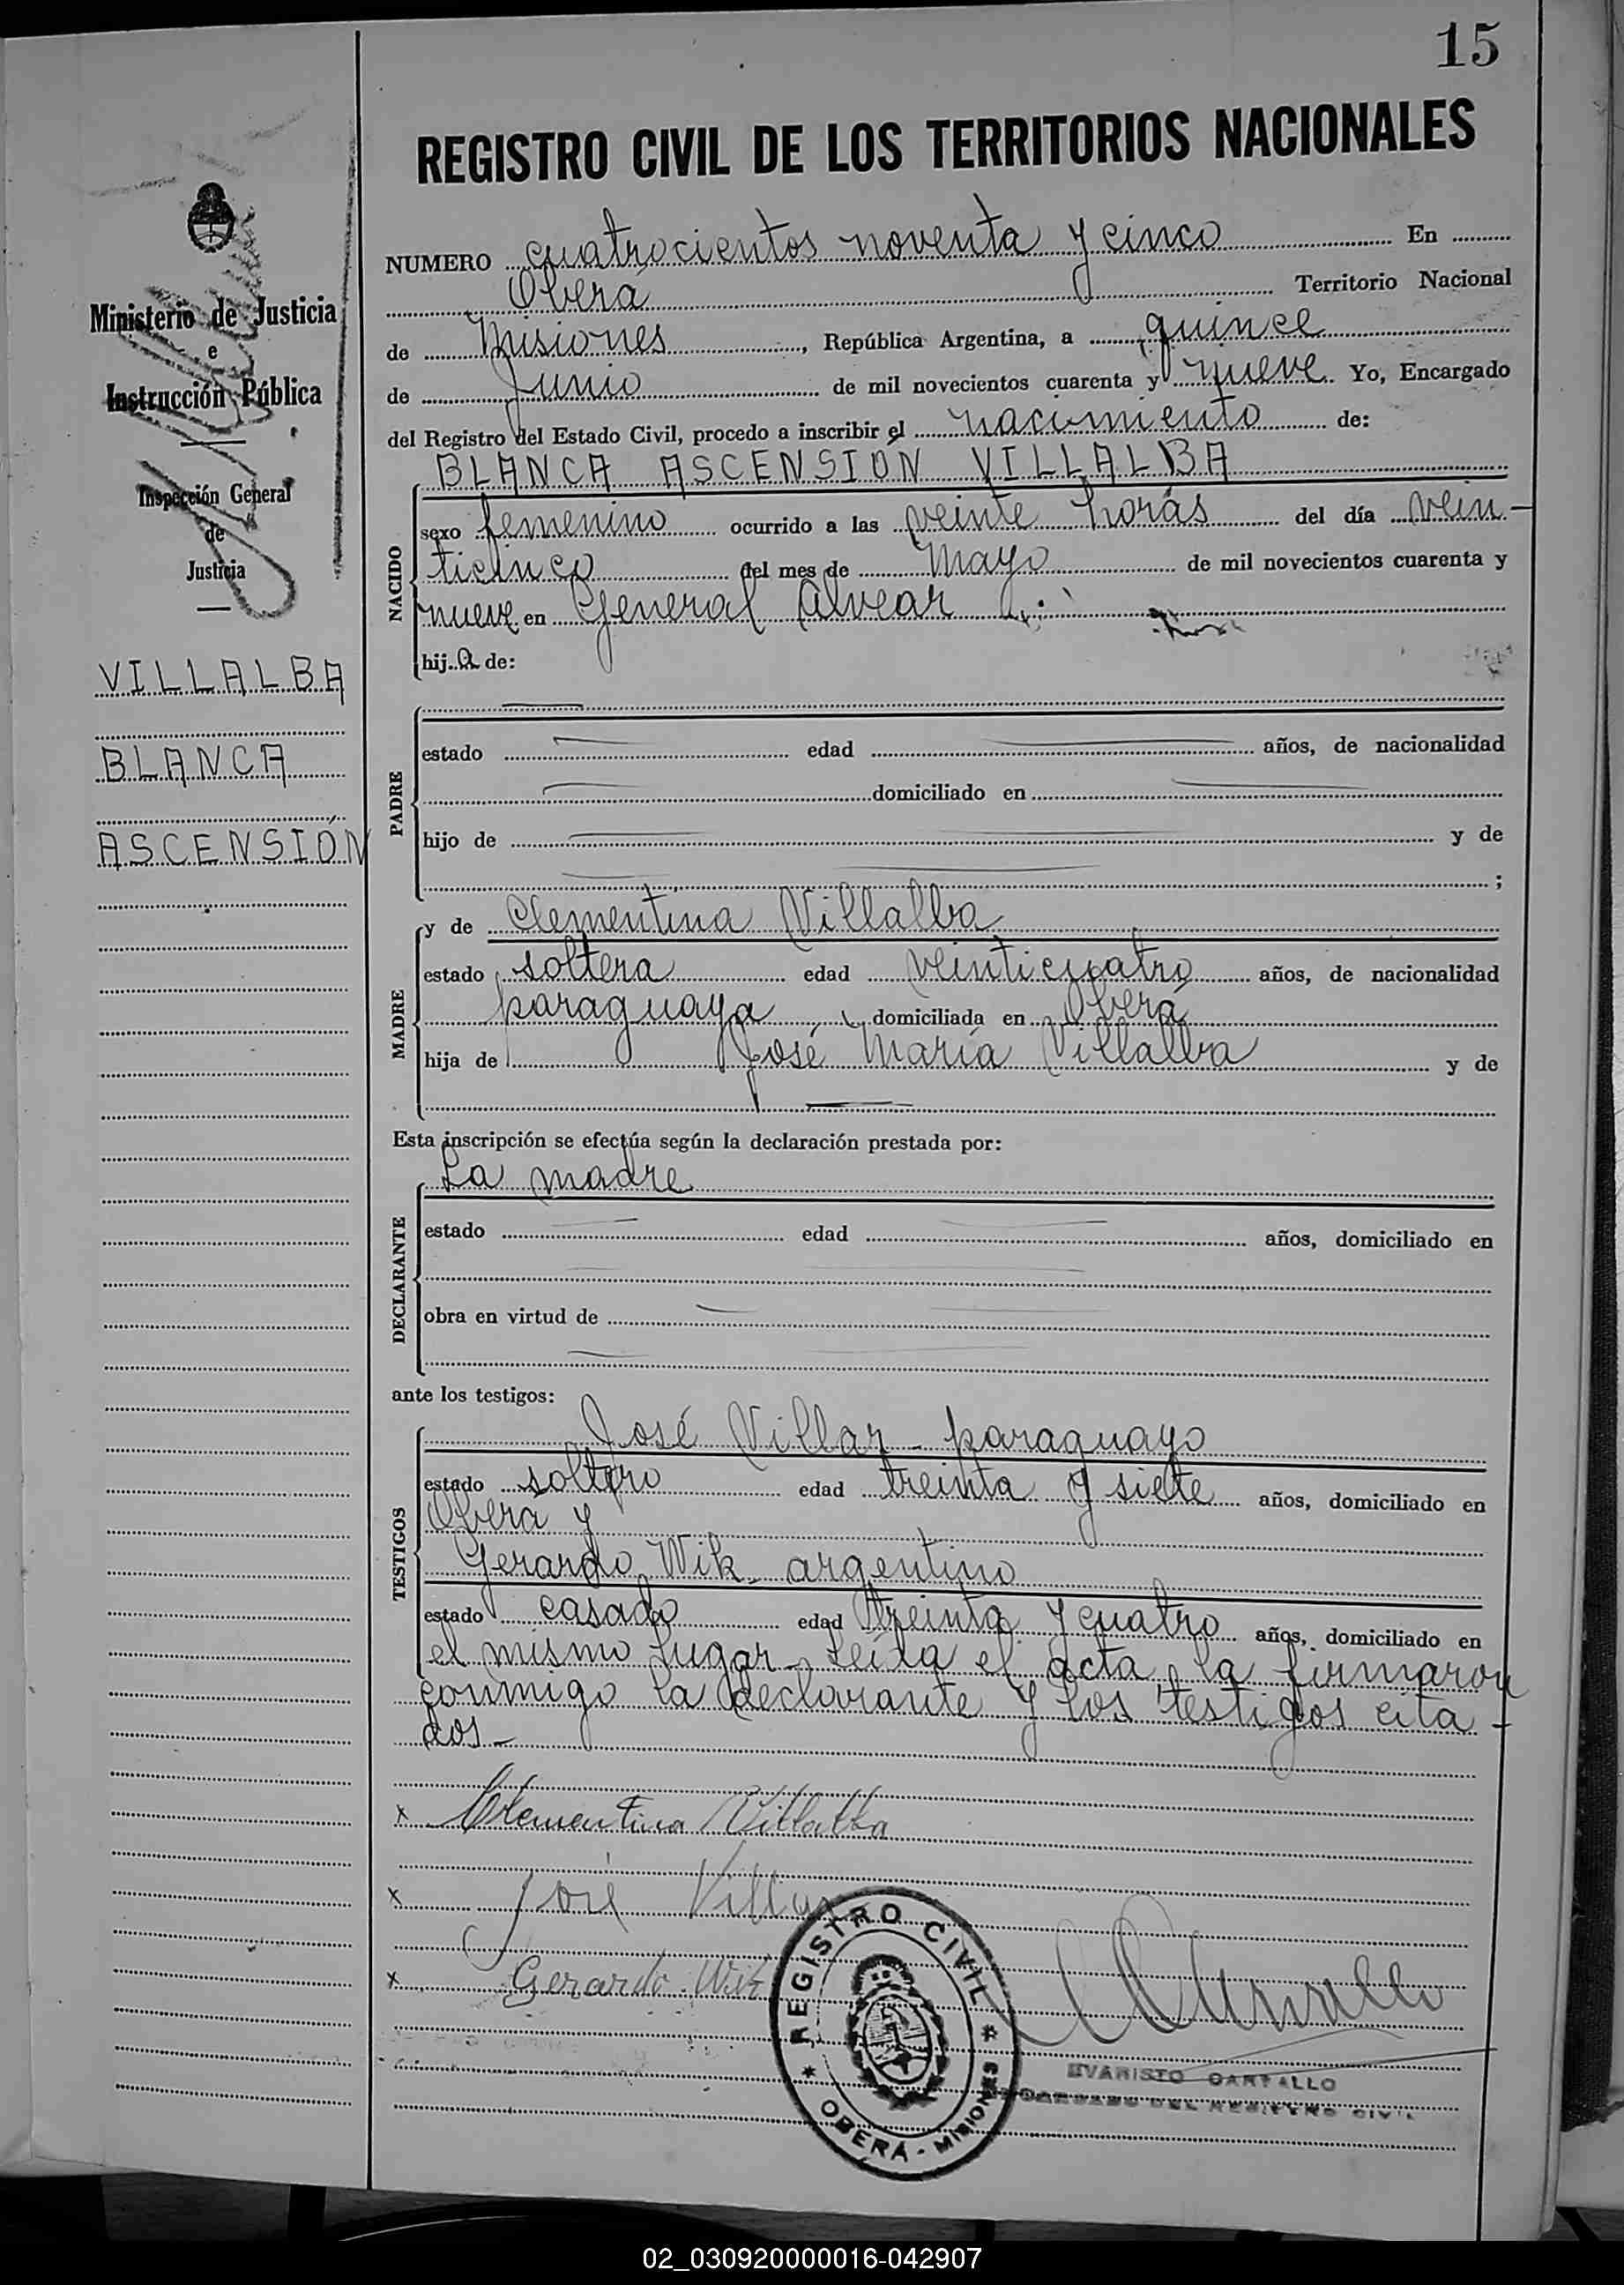 15
REGISTRO CIVIL DE LOS TERRITORIOS NACIONALES
Ministerio de Justicia
e
Instrucción Pública
Inspección General
de
Justicia
VILLALBA
BLANCA
ASCENSIÓN
NUMERO cuatrocientos noventa y cinco En
Oberá Territorio Nacional
de Misiones, República Argentina, a quince
de Junio de mil novecientos cuarenta y nueve Yo, Encargado
del Registro del Estado Civil, procedo a inscribir el nacimiento de:
BLANCA ASCENSION VILLALBA
NACIDO
sexo femenino ocurrido a las veinte horas del día vein-
ticinco del mes de Mayo de mil novecientos cuarenta y
nueve en General Alvear
hij a de:
PADRE
estado edad años, de nacionalidad
domiciliado en
hijo de y de
;
MADRE
y de Clementina Villalba
estado soltera edad veinticuatro años, de nacionalidad
paraguaya domiciliada en Oberá
hija de José María Villalba y de
Esta inscripción se efectúa según la declaración prestada por:
La madre
DECLARANTE
estado edad años, domiciliado en
obra en virtud de
ante los testigos:
TESTIGOS
José Villar - paraguayo
estado soltero edad treinta y siete años, domiciliado en
Obera y
Gerardo Wik - argentino
estado casado edad treinta y cuatro años, domiciliado en
el mismo lugar - Leída el acta la firmaron
conmigo la declarante y los testigos cita-
dos -
x Clementina Villalba
x José Villar
x Gerardo Wik
REGISTRO CIVIL
OBERÁ - MISIONES
EVARISTO
DEL REGISTRO CIVIL
02_030920000016-042907